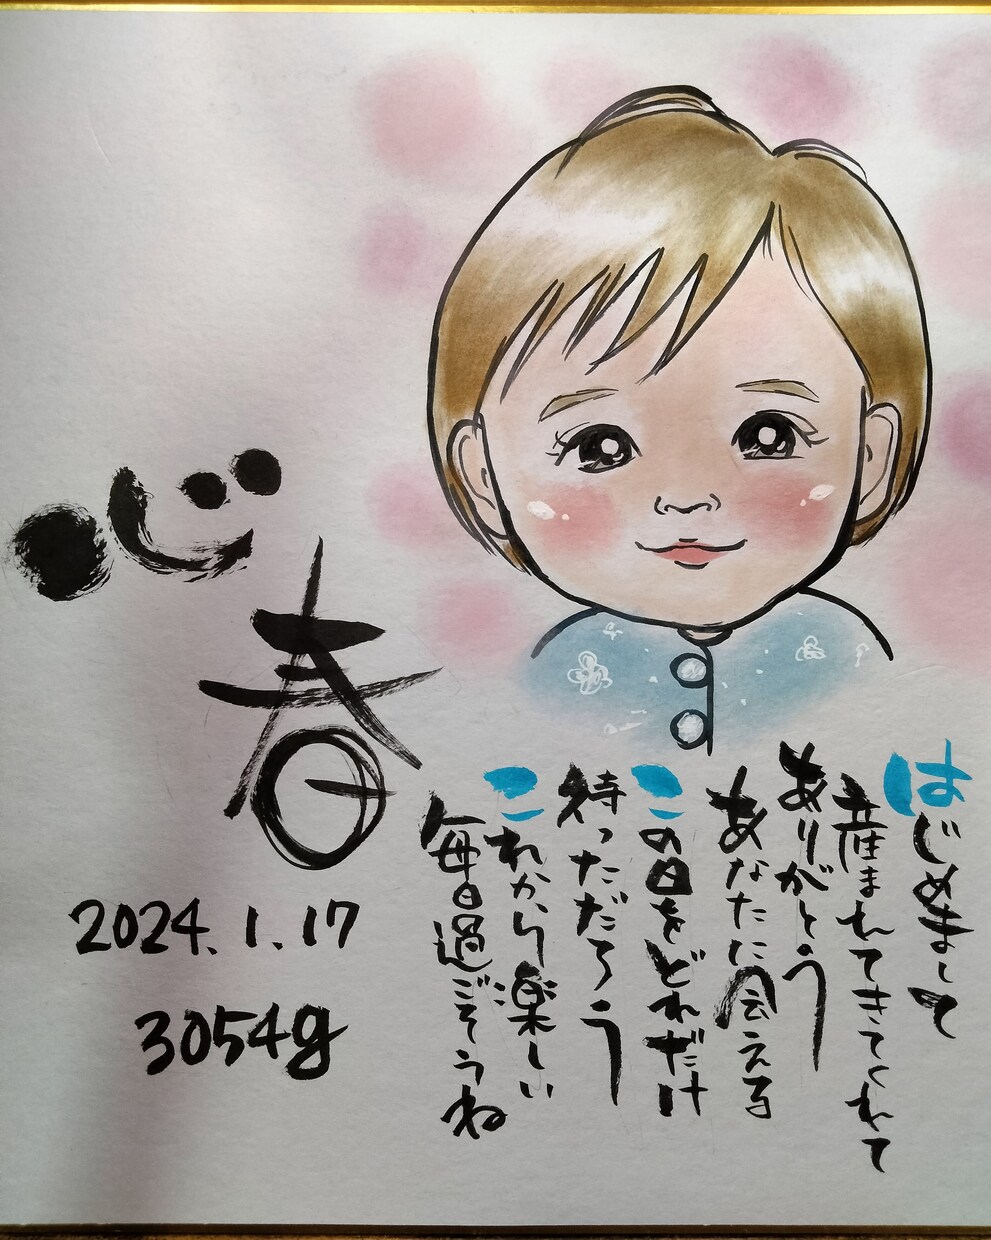 はじめまして
産まれてきてくれて
ありがとう
あなたに会える
この日をどれだけ
待っただろう
これから楽しい
毎日過ごそうね
心春
2024.1.17
3054g